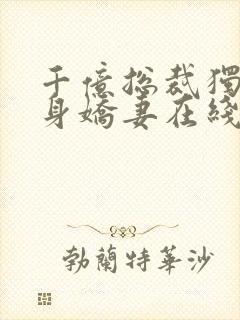 千億总裁獨
身嬌妻在綫
勃蘭特華沙